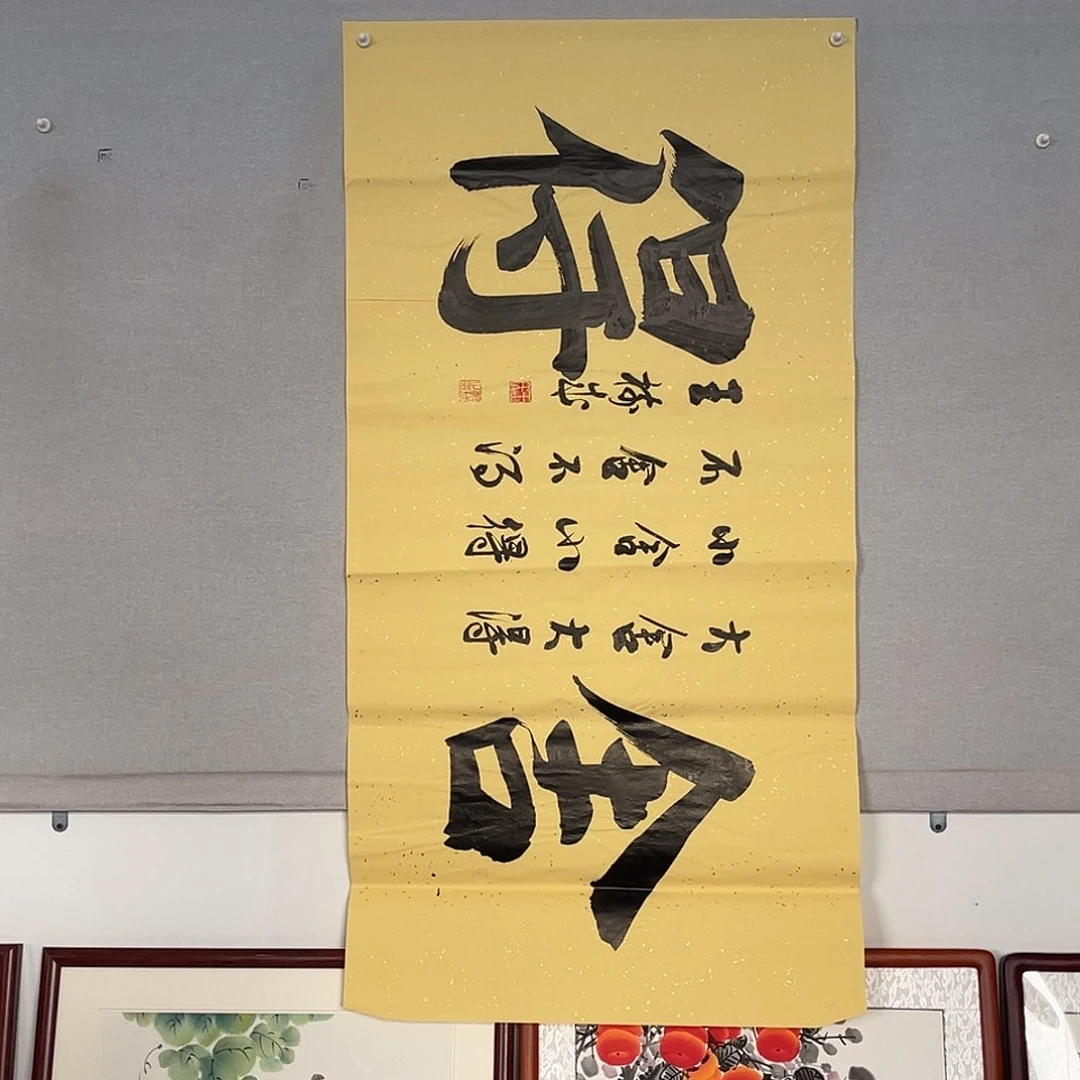 舍
大舍大得
小舍小得
不舍不得
王
得